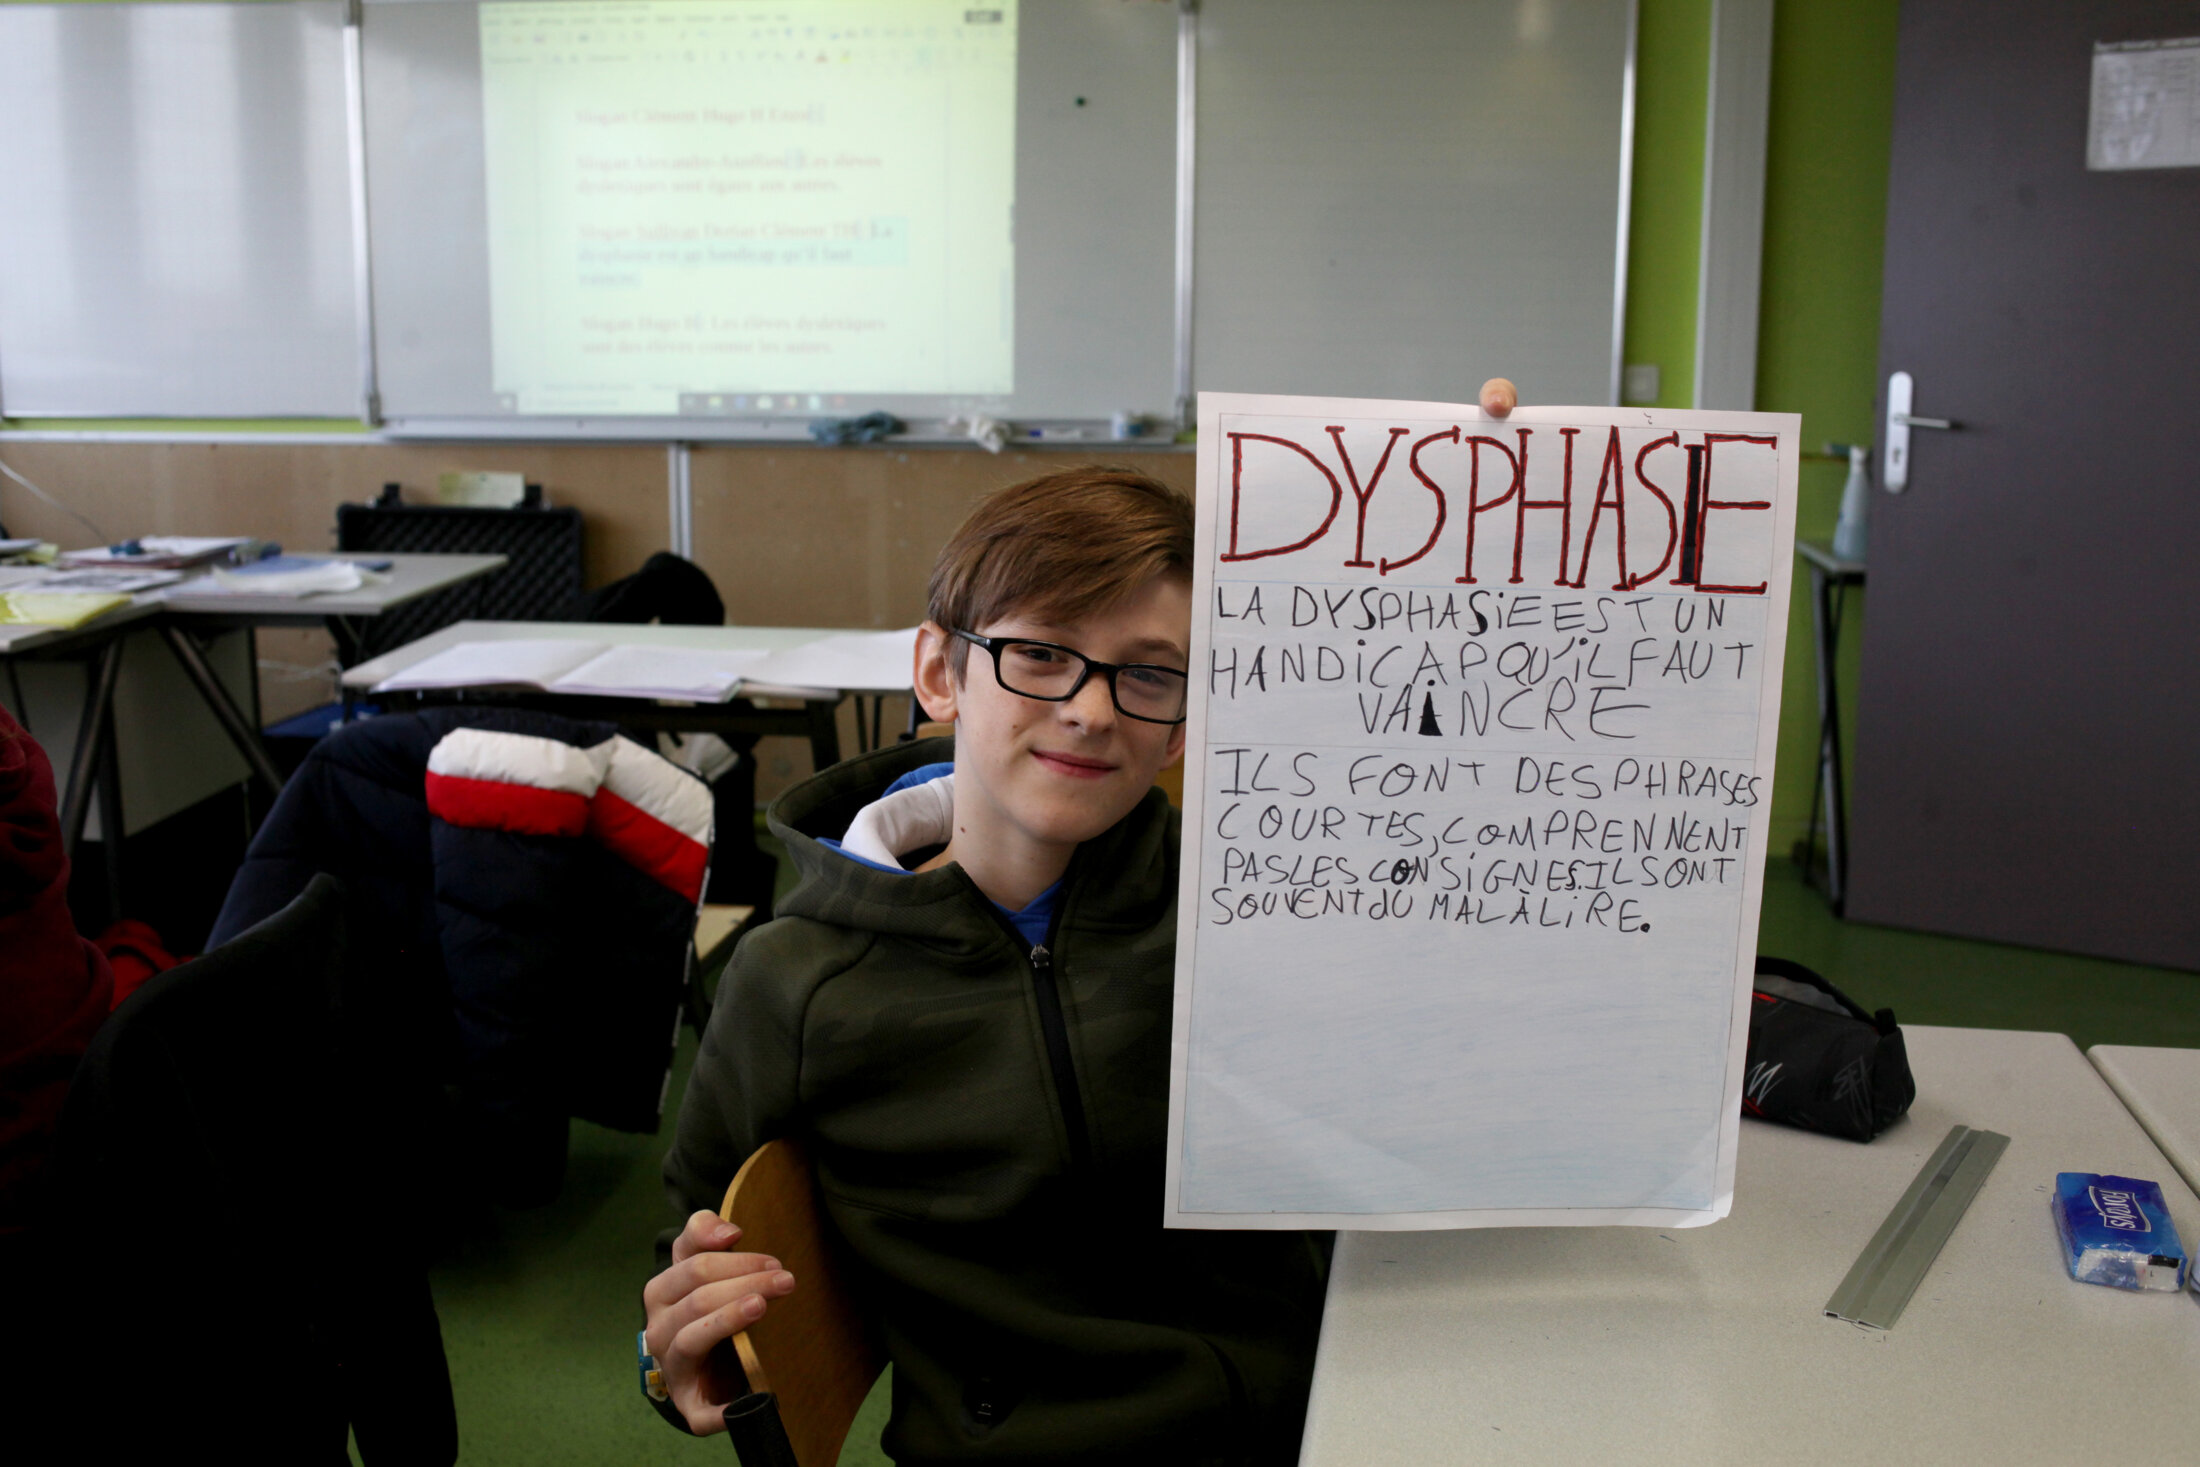 Slogan Clément Hugo H Enzo
Slogan Alexandre-Aurélien : Les élèves
dyslexiques sont égaux aux autres.
Slogan Sullivan Dorian Clément TH : La
dysphasie est un handicap qu'il faut
vaincre.
Slogan Hugo B : Les élèves dyslexiques
sont des élèves comme les autres.
DYSPHASIE
LA DYSPHASiE EST UN
HANDiCAP QU'iL FAUT
VAiNCRE
ILS FONT DES PHRASES
COURTES, COMPRENNENT
PAS LES CONSiGNES. ILS ONT
SOUVENT dU MAL À LiRE.
FLORALYS